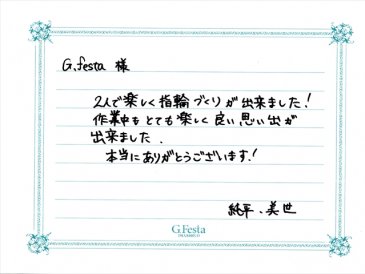 G.festa 様
2人で楽しく指輪づくりが出来ました!
作業中もとても楽しく良い思い出が
出来ました.
本当にありがとうございます!
純平、美世
G.Festa